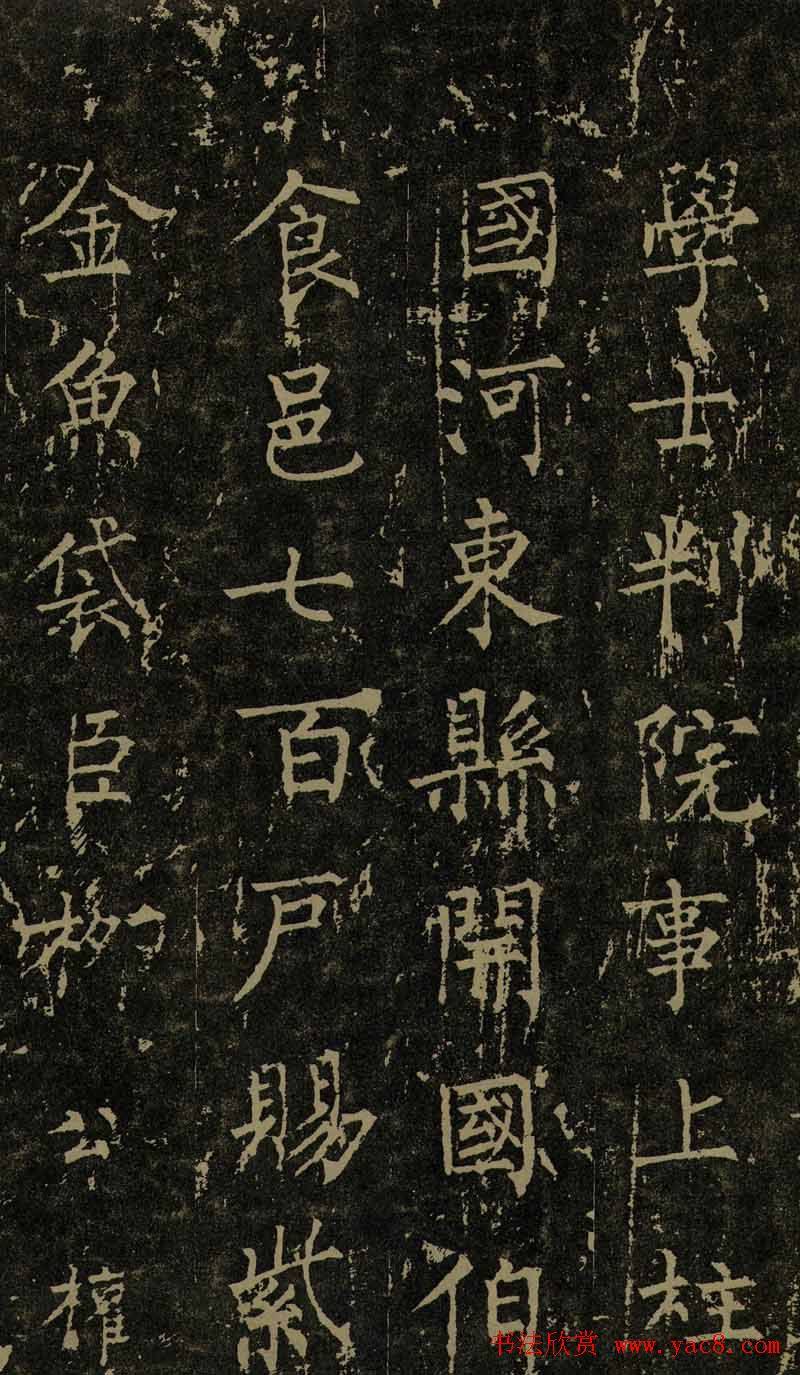 學士判院事上柱
國河東縣開國伯
食邑七百戶賜紫
金魚袋臣柳公權
书法欣赏 www.yac8.com